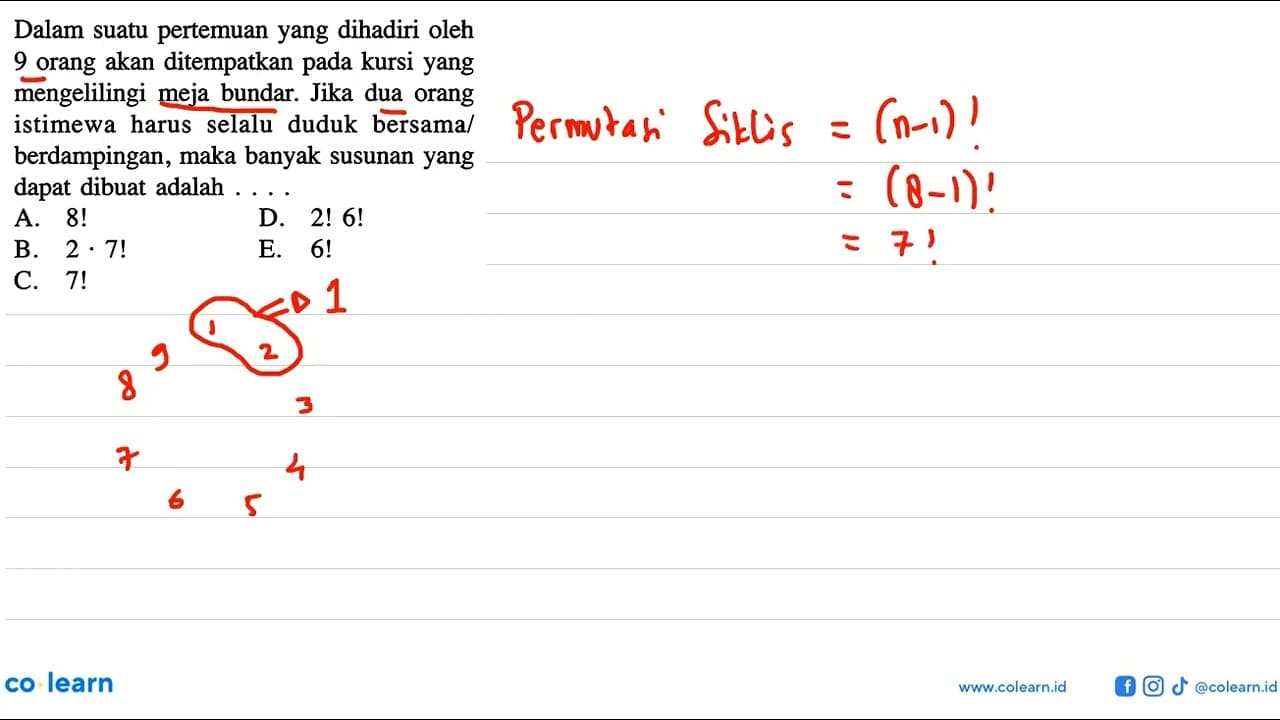 Dalam suatu pertemuan yang dihadiri oleh
9 orang akan ditempatkan pada kursi yang
mengelilingi meja bundar. Jika dua orang
istimewa harus selalu duduk bersama/
berdampingan, maka banyak susunan yang
dapat dibuat adalah . . . .
A. 8! D. 2! 6!
B. 2 · 7! E. 6!
C. 7!
Permutasi Siklis = (n-1)!
= (8-1)!
= 7!
1
1
2
9
8
3
7
4
6
5
co·learn
www.colearn.id
@colearn.id